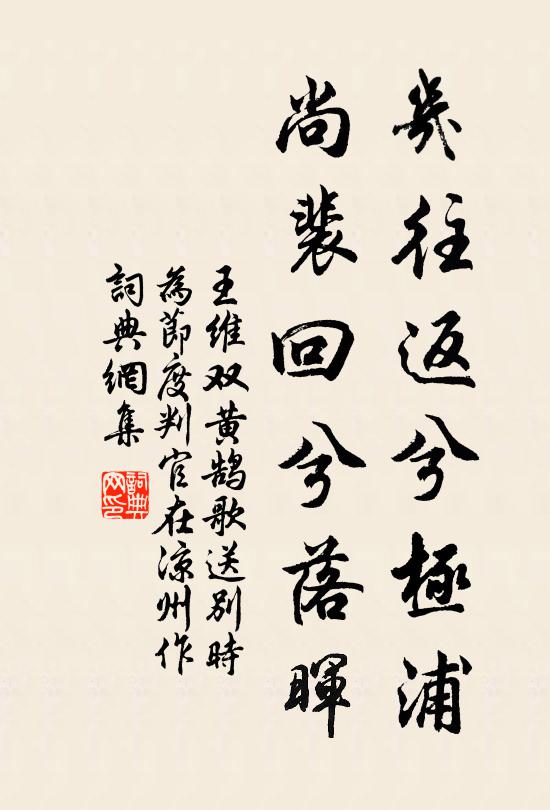 幾往返兮極浦
尚裴回兮落暉
王維双黄鹄歌送别時
為節度判官在凉州作
詞典網集
詞典网印